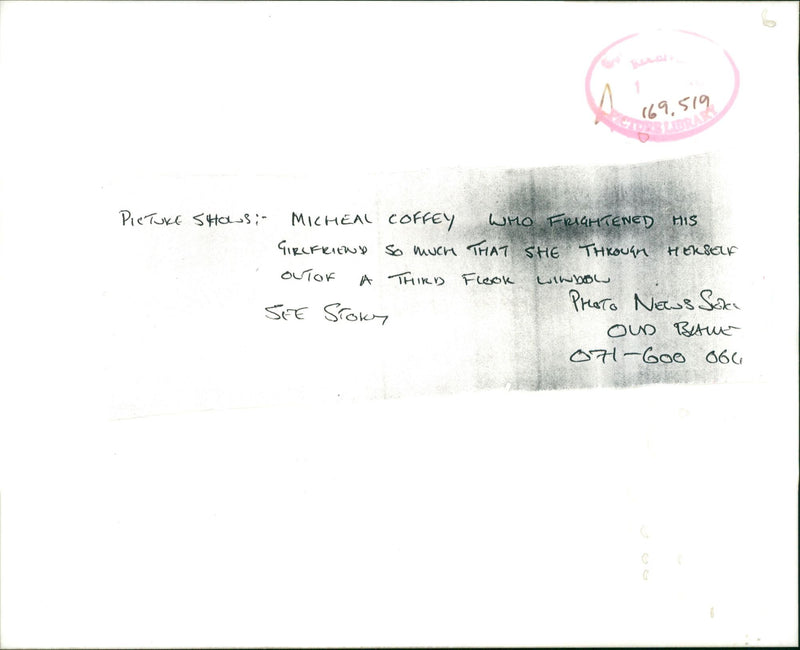 169.519
PICTURE LIBRARY
PICTURE SHOWS:- MICHEAL COFFEY WHO FRIGHTENED HIS
GIRLFRIEND SO MUCH THAT SHE THROUGH HERSELF
OUTOF A THIRD FLOOR WINDOW
SEE STORY
PHOTO NEWS
OLD
071-600